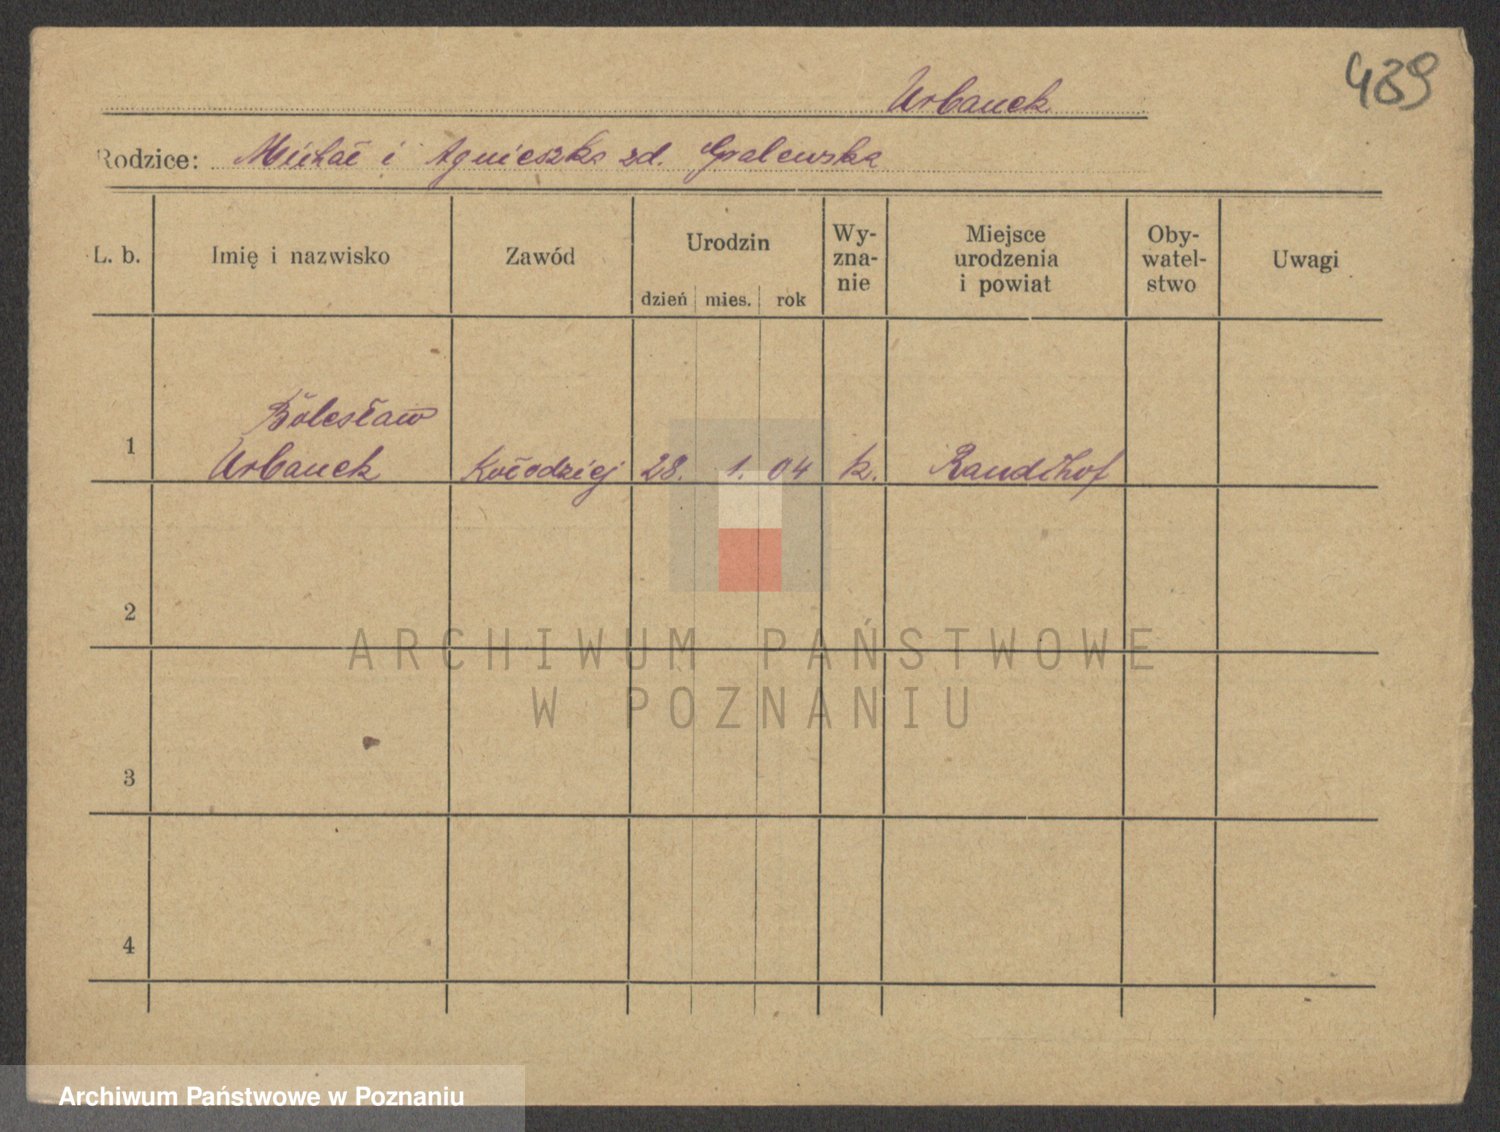 489
Urbanek
Rodzice: Michał i Agnieszka zd. Gralewska
L. b.
Imię i nazwisko
Zawód
Urodzin
dzień mies. rok
Wy-
zna-
nie
Miejsce
urodzenia
i powiat
Oby-
watel-
stwo
Uwagi
Bolesław
1 Urbanek Kołodziej 28. 1. 04 k.
2
3
4
ARCHIWUM PAŃSTWOWE
W POZNANIU
Archiwum Państwowe w Poznaniu